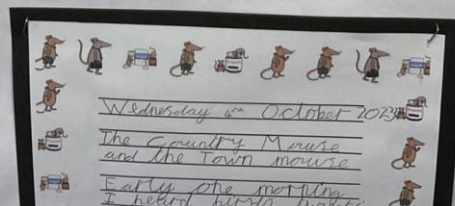 Wednesday 4th October 2023
The Country Mouse
and the Town mouse
Early one morning
I heard birds